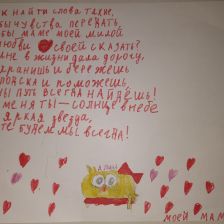 К НАЙТИ СЛОВА ТАКИЕ,
БЫ ЧУВСТВА ПЕРЕДАТЬ,
БЫ МАМЕ МОЕЙ МИЛОЙ
ЛЮБВИ СВОЕЙ СКАЗАТЬ?
МНЕ В ЖИЗНИ ДАЛА ДОРОГУ,
ХРАНИШЬ И БЕРЕЖЁШЬ
ПОИСКА И ПОМОЖЕШЬ,
НЫ ПУТЬ ВСЕГДА НАЙДЁШЬ!
МЕНЯ ТЫ — СОЛНЦЕ В НЕБЕ
ЯРКАЯ ЗВЕЗДА,
ТЕ БУДЕМ МЫ ВСЕГДА!
МОЕЙ МАМ